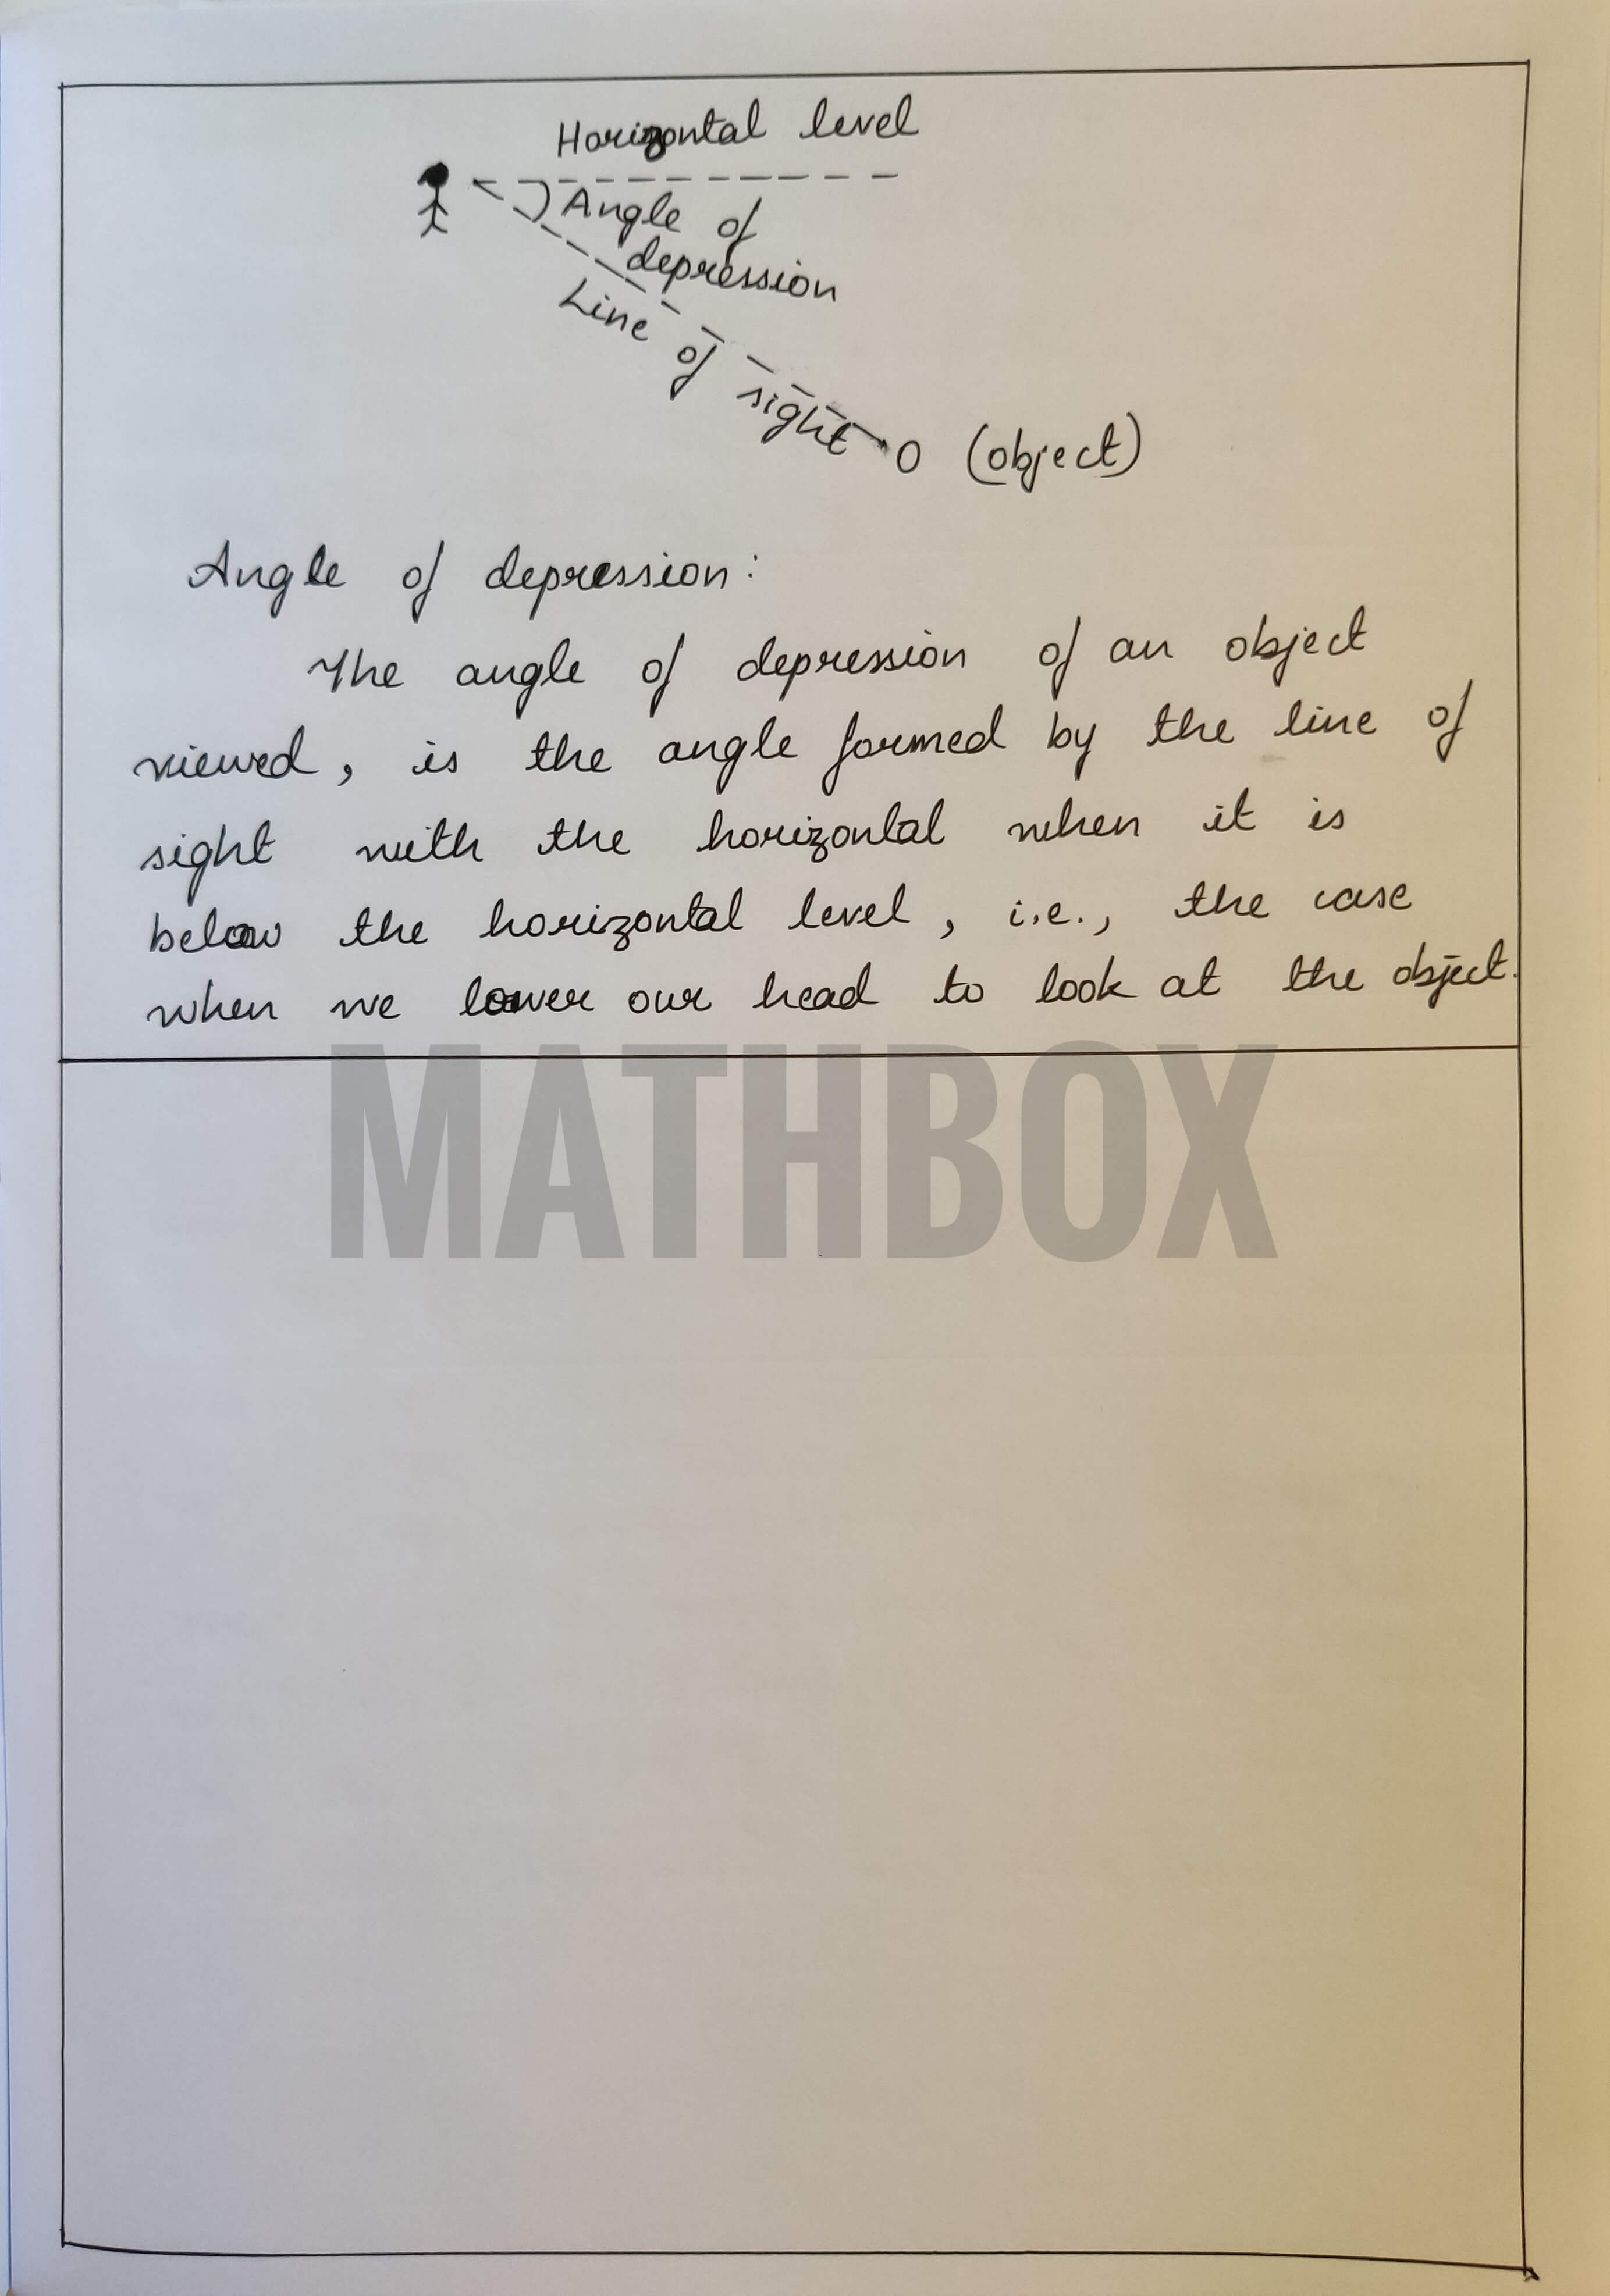 Horizontal level
Angle of
depression
Line of sight
O (object)
Angle of depression:
The angle of depression of an object
viewed, is the angle formed by the line of
sight with the horizontal when it is
below the horizontal level, i.e., the case
when we lower our head to look at the object.
MATHBOX